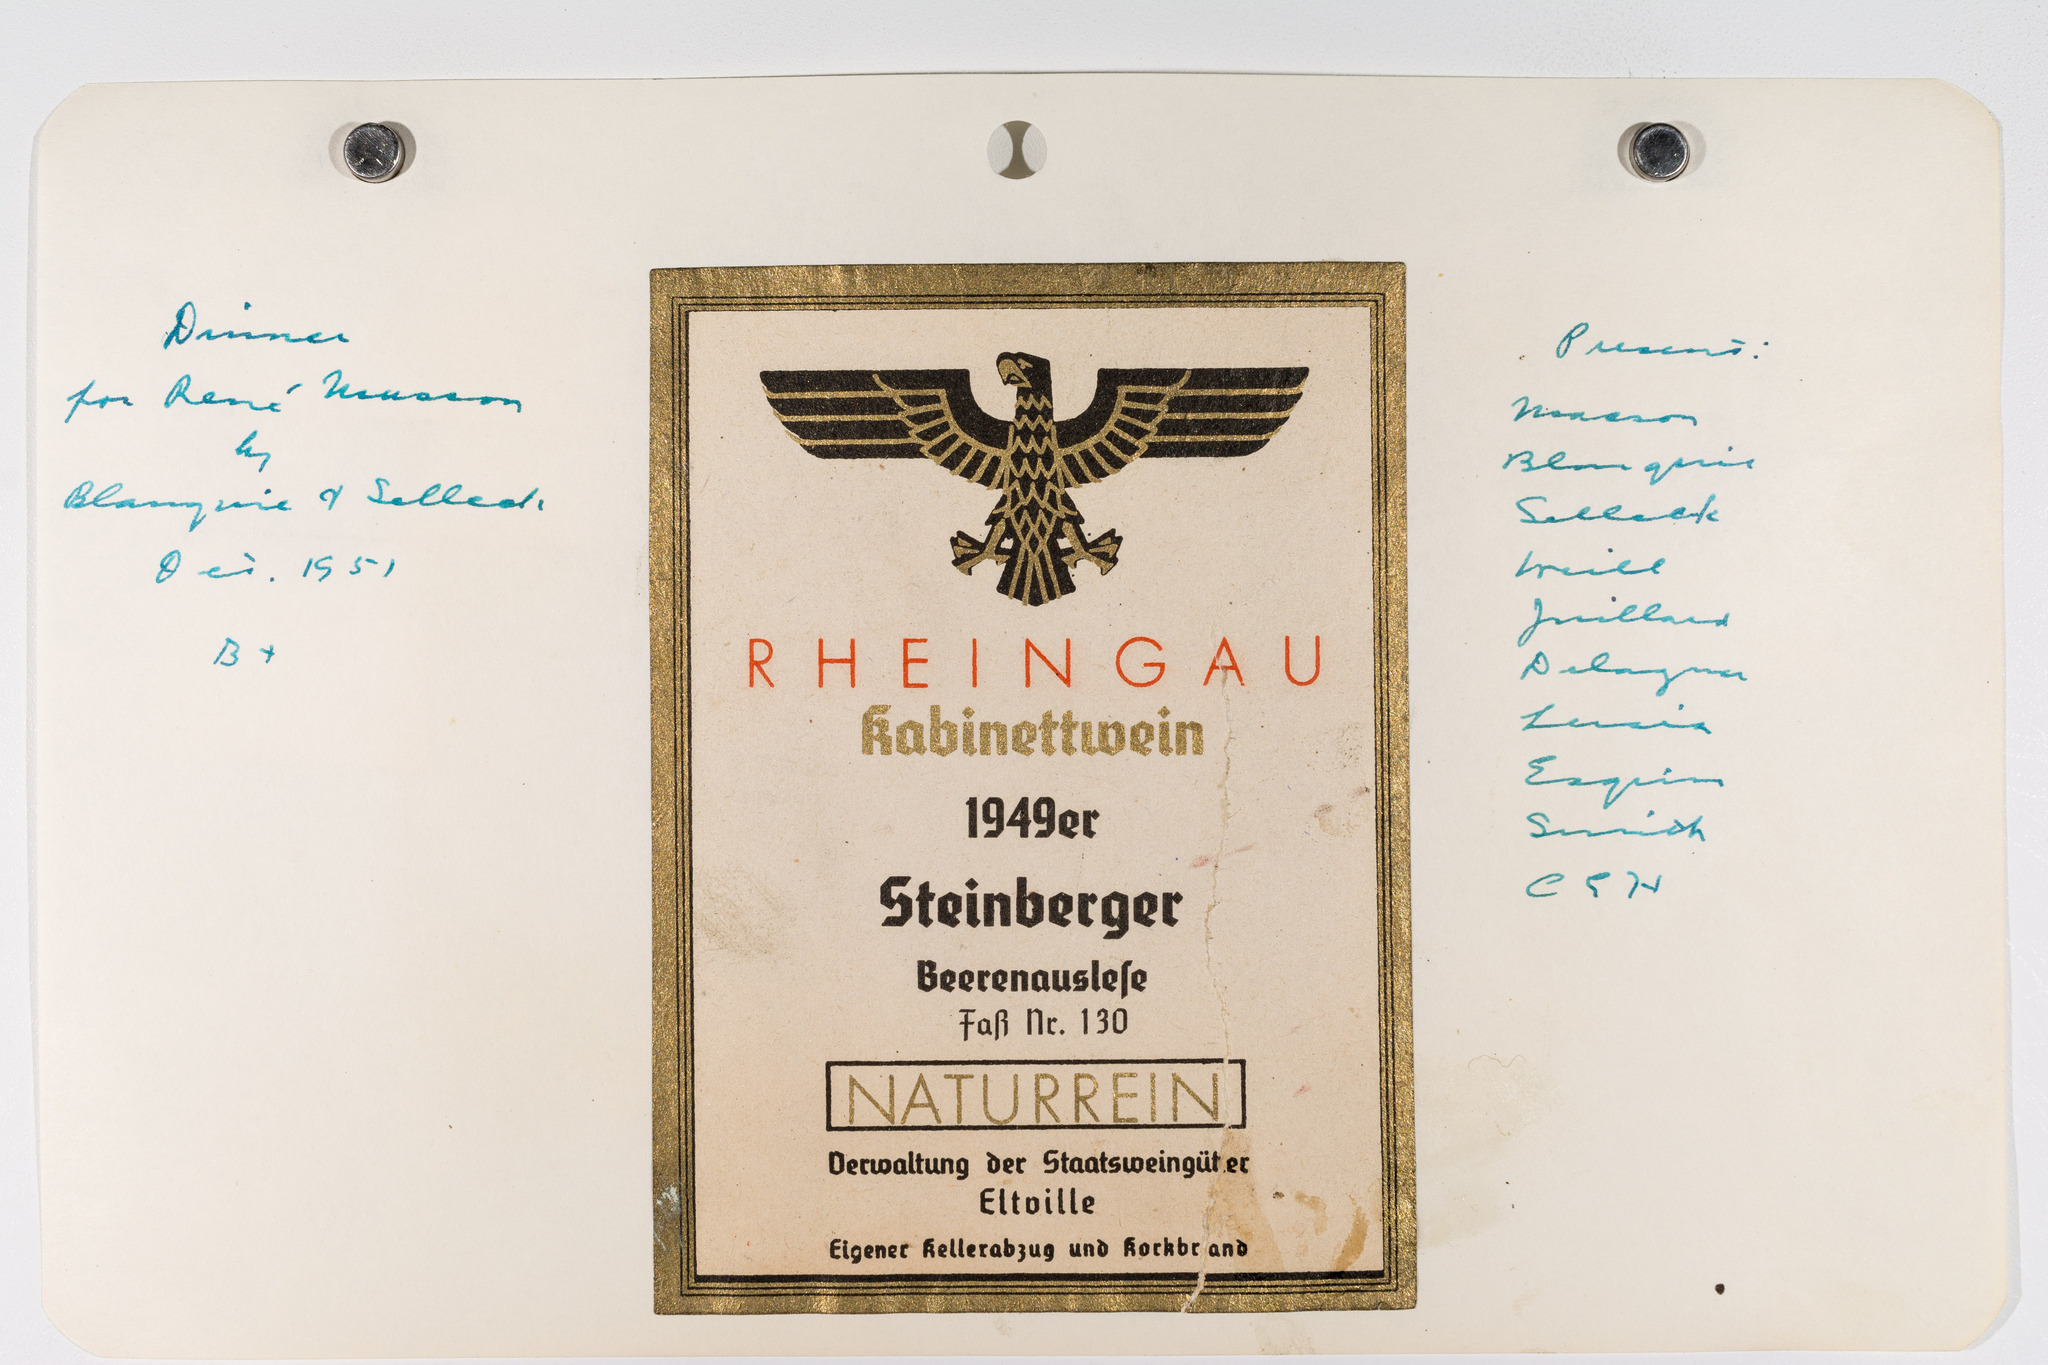 Dinner
for René Masson
by
Blanquie & Selleck
Dec. 1951
B+
RHEINGAU
Kabinettwein
1949er
Steinberger
Beerenausleſe
Faß Nr. 130
NATURREIN
Verwaltung der Staatsweingüter
Eltville
Eigener Kellerabzug und Korkbrand
Present:
Masson
Blanquie
Selleck
Weill
Juillard
Esquin
Smith